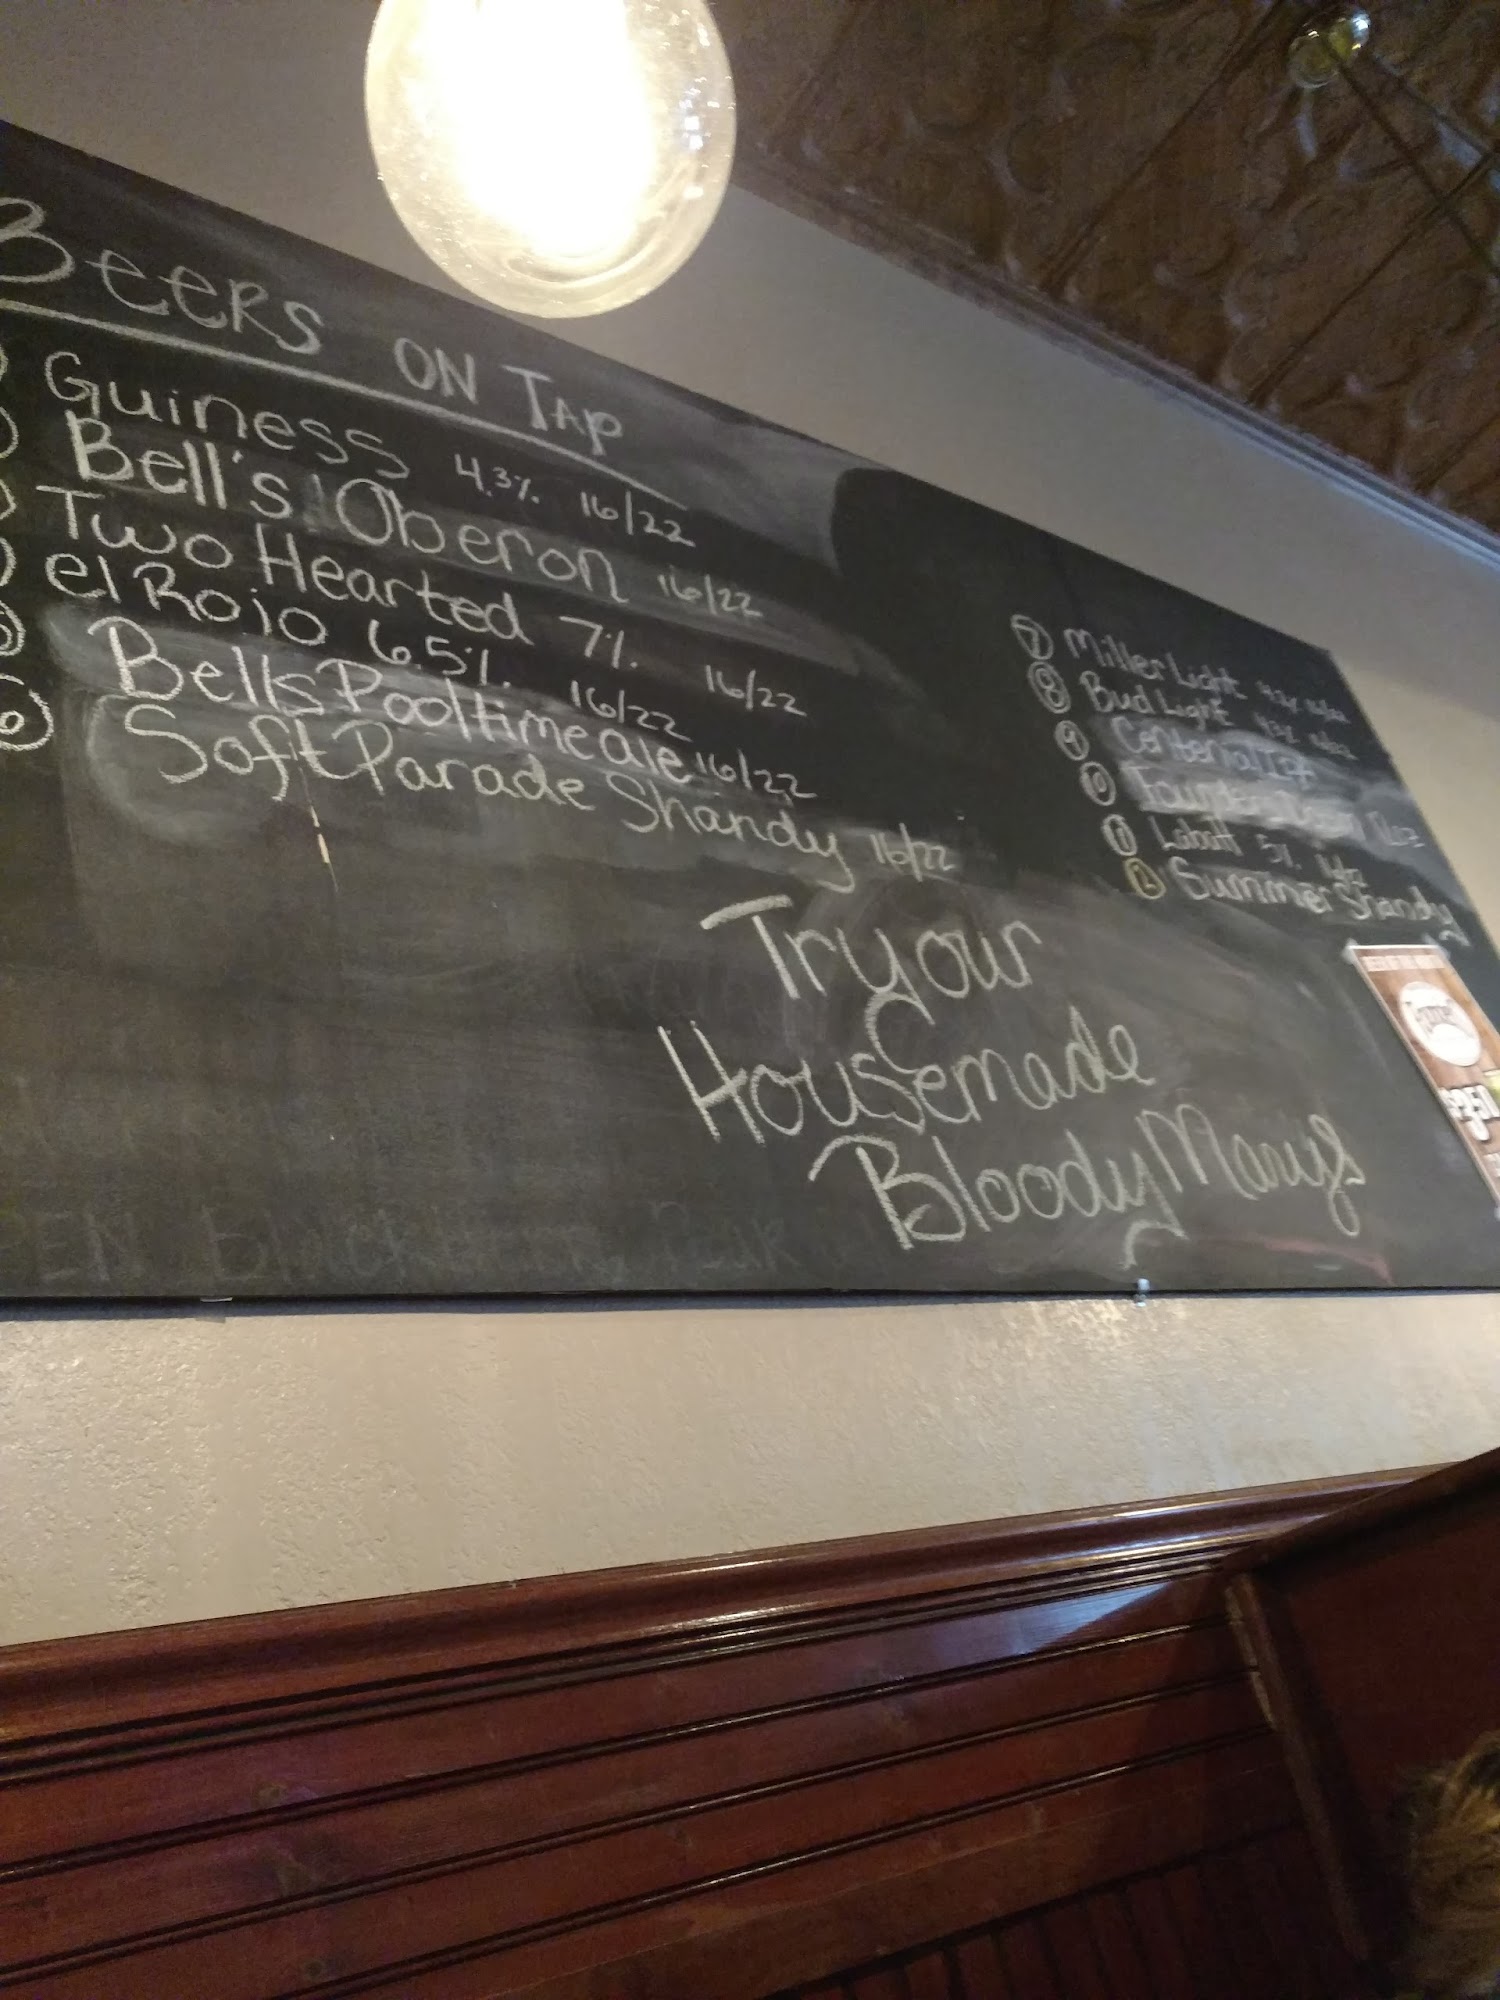 BEERS ON TAP
Guiness 4.3% 16/22
Bell's Oberon 16/22
Two Hearted 7% 16/22
el Rojo 6.5% 16/22
Bells Pooltime ale 16/22
6 Soft Parade Shandy 16/22
7 Miller Light
8 Bud Light 4.3%
9 Centenial IPA
10 Founders
11 Labatt 5% 16/22
12 Summer Shandy
Try our
Housemade
Bloody Marys